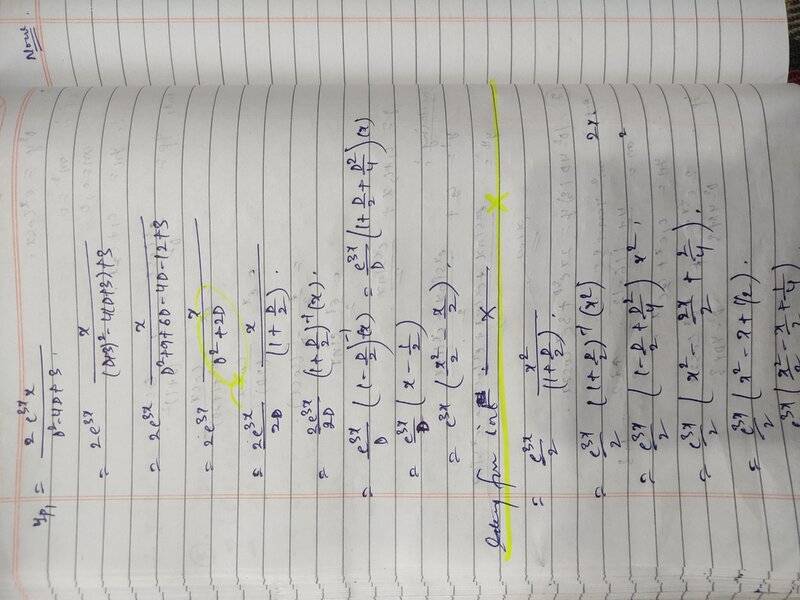 Now.
yp₁ = 2e^{3x} x / D²-4D+3.
= 2e^{3x} x / (D+3)²-4(D+3)+3
= 2e^{3x} x / D²+9+6D-4D-12+3
= 2e^{3x} x / D²+2D
= 2e^{3x}/2D x / (1+D/2).
= 2e^{3x}/2D (1+D/2)^{-1}(x).
= e^{3x}/D (1-D/2)^{-1}(x) = e^{3x}/D (1+D/2+D²/4)(x)
= e^{3x}/D (x-1/2)
= e^{3x} (x²/2-x/2).
x x
= e^{3x}/2 x²/(1+D/2).
= e^{3x}/2 (1+D/2)^{-1}(x²) 2x.
= e^{3x}/2 (1-D/2+D²/4) x². 2
= e^{3x}/2 (x²-2x/2+2/4).
= e^{3x}/2 (x²-x+1/2).
e^{3x} (x²/2-x/2+1/4)